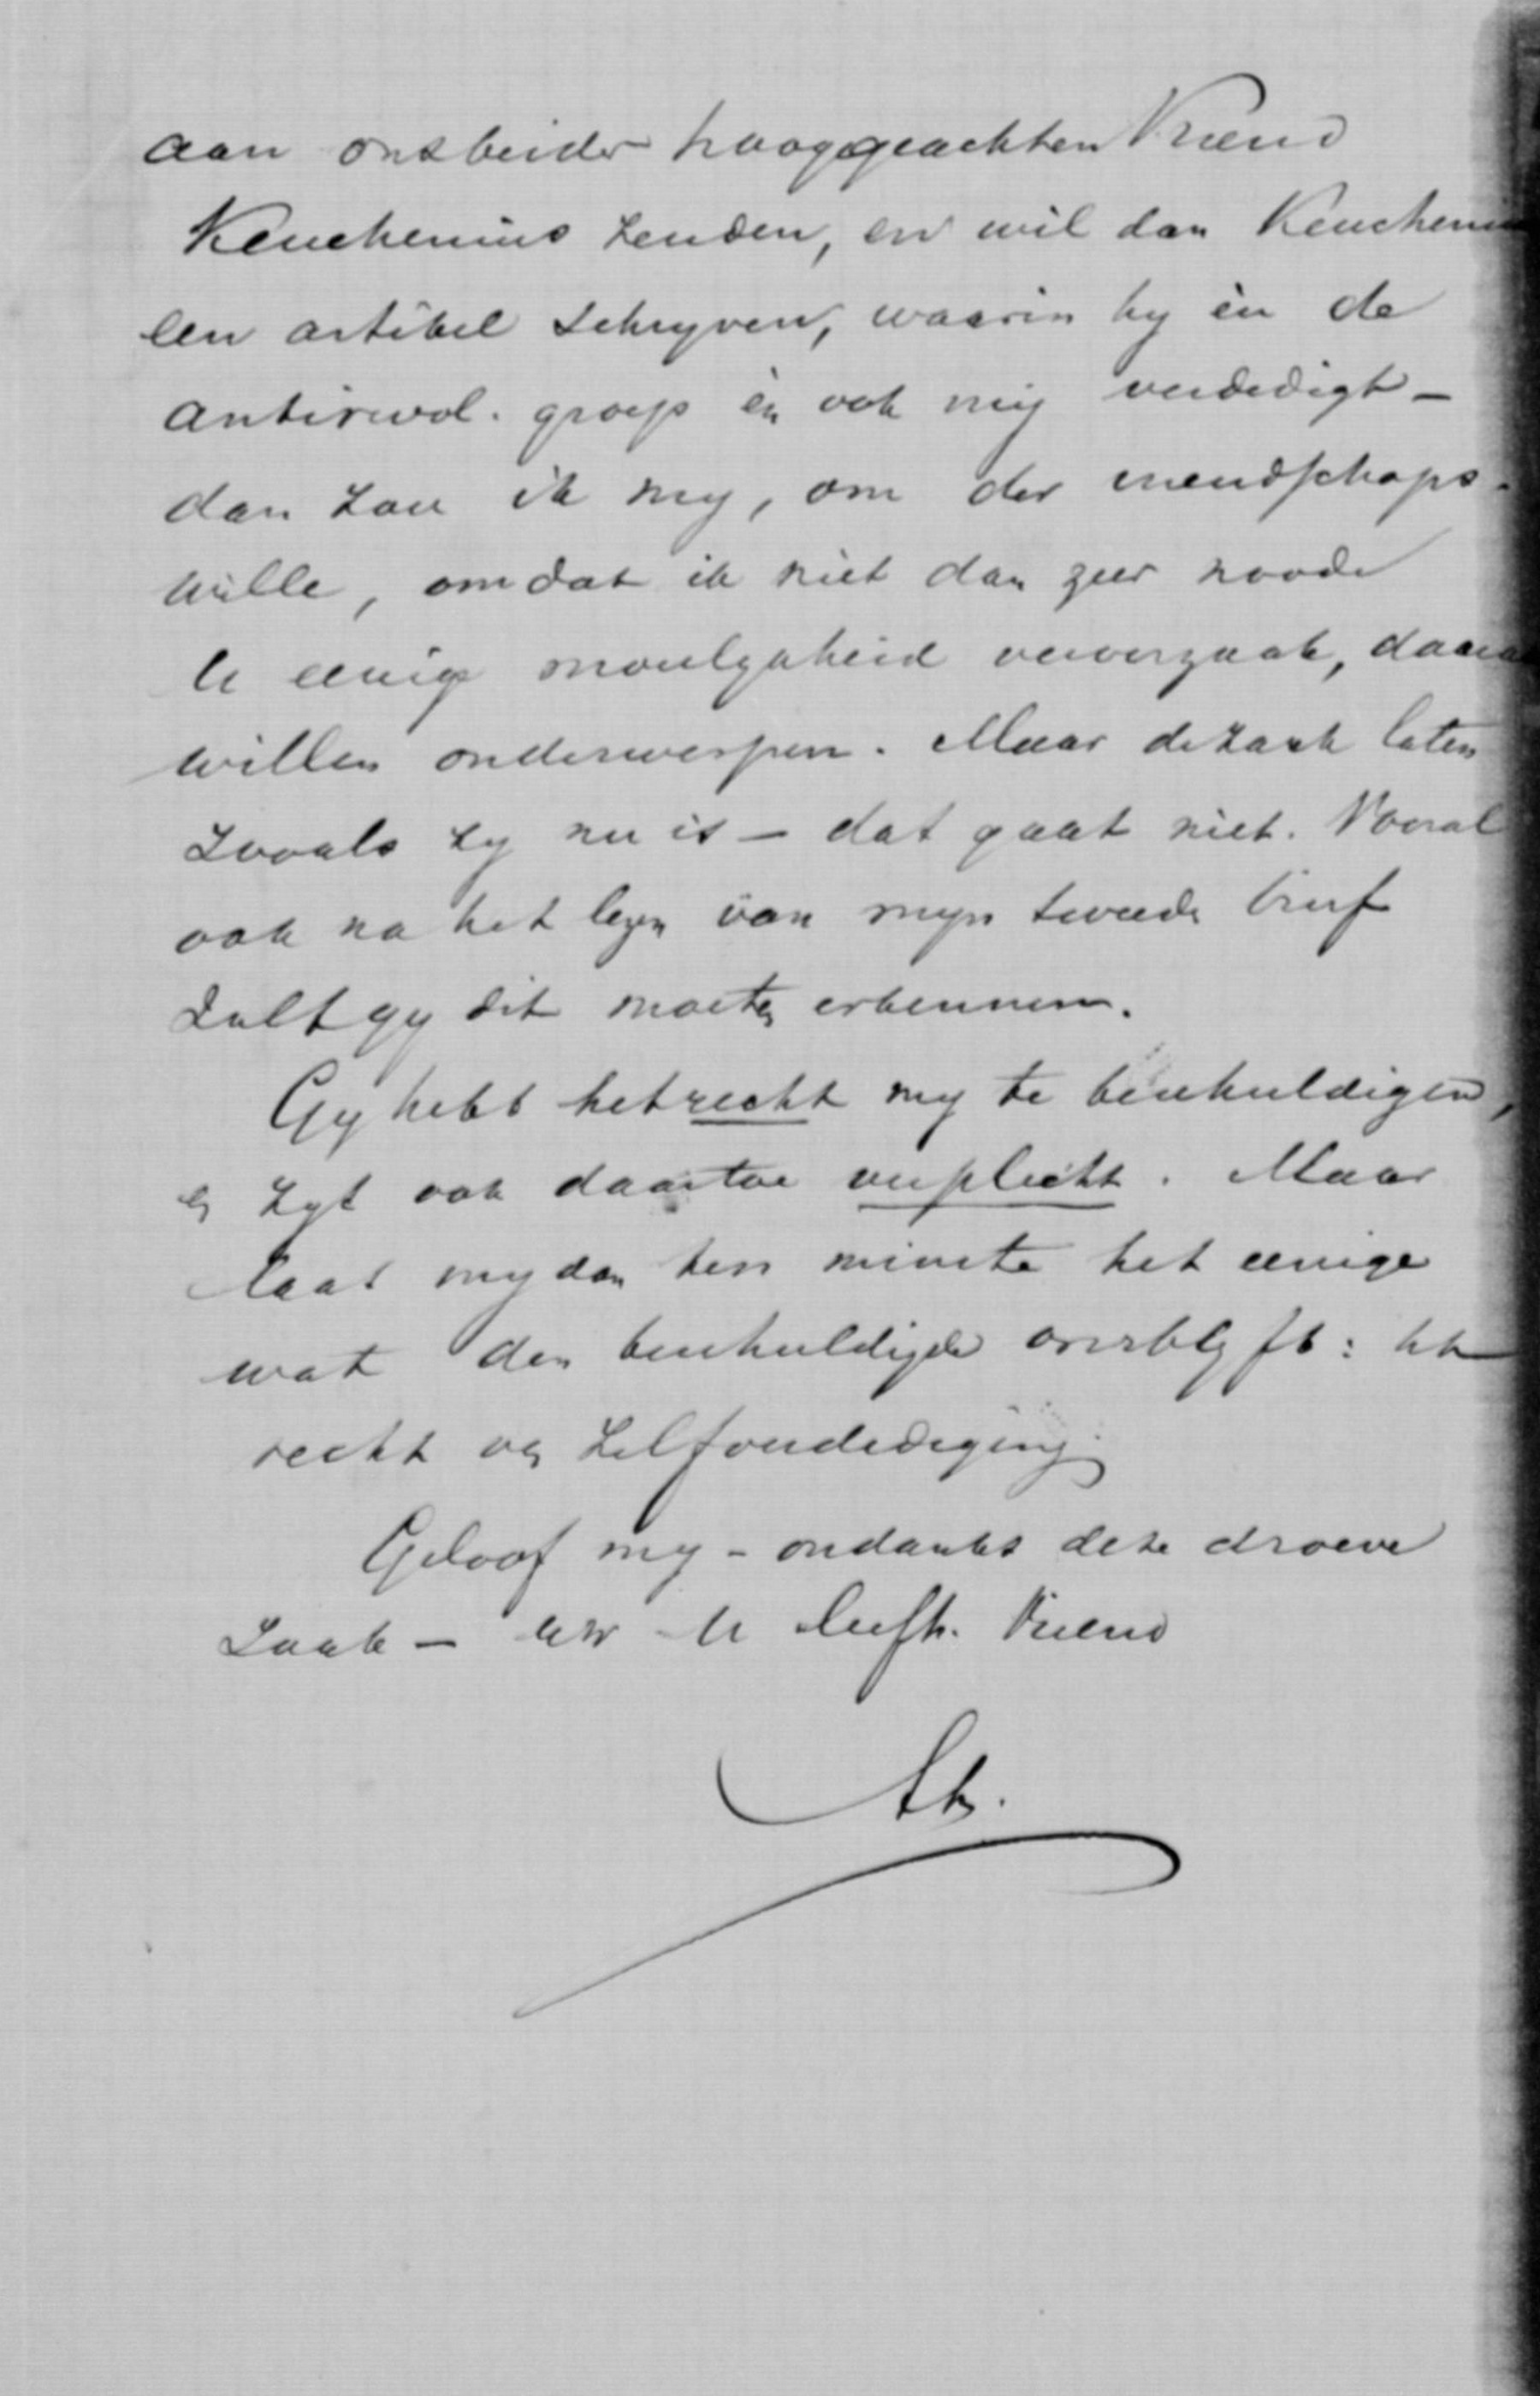 aan ons beider hooggeachten Vriend
Keuchenius zenden, en wil dan Keucheni
een artikel schryven, waarin hy èn de
antirevol. groep èn ook mij verdedigt –
dan zou ik my, om der vriendschaps-
wille, omdat ik niet dan zeer noode
U eenige moeilykheid veroorzaak, daar
willen onderwerpen. Maar de zaak laten
zooals zy nu is – dat gaat niet. Vooral
ook na het lezen van myn tweede brief
zult gy dit moeten erkennen.
Gy hebt het recht my te beschuldigen,
en zyt ook daartoe verplicht. Maar
laat my dan ten minste het eenige
wat den beschuldigde overblyft: het
recht op zelfverdediging.
Geloof my – ondanks deze droeve
zaak – een U liefh. Vriend